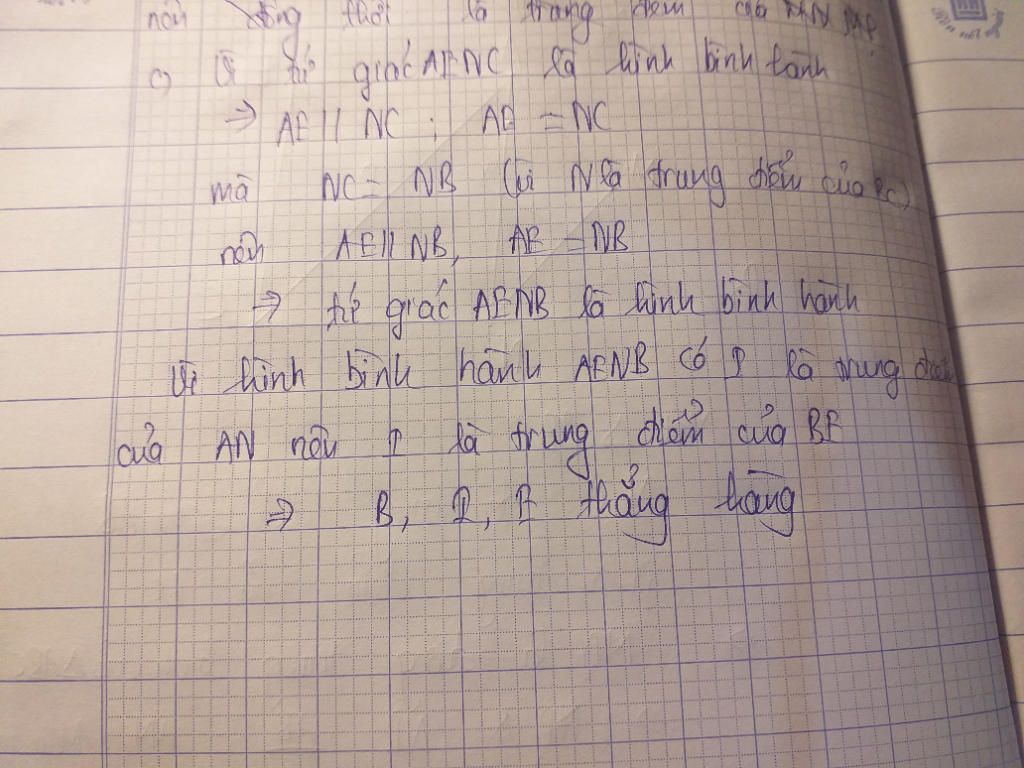 nên đồng thời là trung điểm của MN, MP
c) Vì tứ giác AENC là hình bình hành
⇒ AE // NC ; AE = NC
mà NC = NB (vì N là trung điểm của BC)
nên AE // NB, AE = NB
⇒ tứ giác AENB là hình bình hành
Vì hình bình hành AENB có I là trung điểm
của AN nên I là trung điểm của BE
⇒ B, I, E thẳng hàng